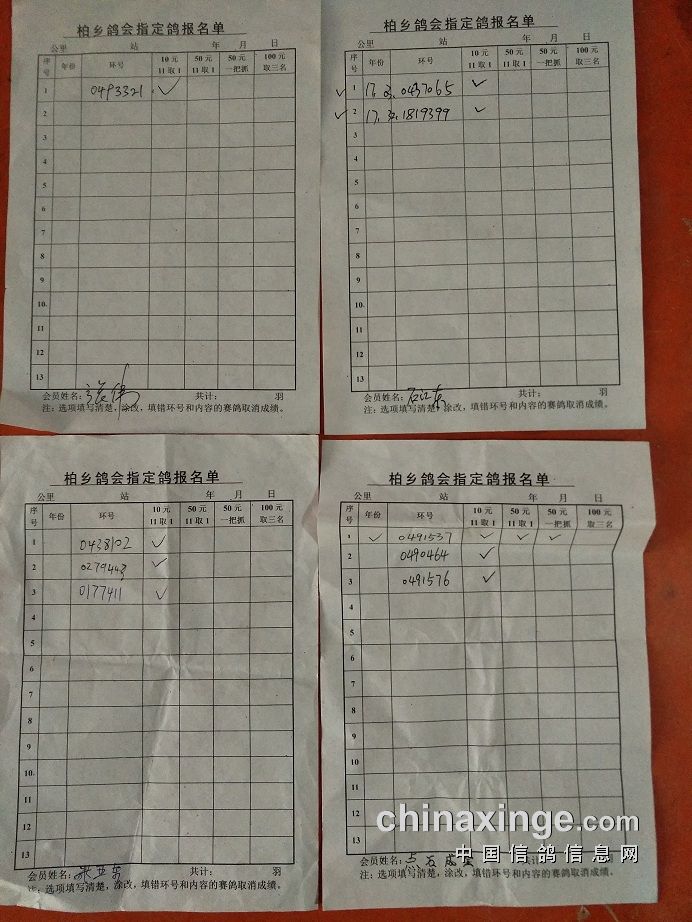 柏乡鸽会指定鸽报名单
公里 站 年 月 日
序号 年份 环号 10元 11取1 50元 11取1 50元 一把抓 100元 取三名
1 0493321 ✓
2
3
4
5
6
7
8
9
10
11
12
13
会员姓名: 张伟 共计: 羽
注:选项填写清楚,涂改,填错环号和内容的赛鸽取消成绩。
柏乡鸽会指定鸽报名单
公里 站 年 月 日
序号 年份 环号 10元 11取1 50元 11取1 50元 一把抓 100元 取三名
✓ 1 17. 0437065 ✓
✓ 2 17. 1819399 ✓
3
4
5
6
7
8
9
10
11
12
13
会员姓名: 共计: 羽
注:选项填写清楚,涂改,填错环号和内容的赛鸽取消成绩。
柏乡鸽会指定鸽报名单
公里 站 年 月 日
序号 年份 环号 10元 11取1 50元 11取1 50元 一把抓 100元 取三名
1 0438102 ✓
2 0279443 ✓
3 0177411 ✓
4
5
6
7
8
9
10
11
12
13
会员姓名: 共计: 羽
注:选项填写清楚,涂改,填错环号和内容的赛鸽取消成绩。
柏乡鸽会指定鸽报名单
公里 站 年 月 日
序号 年份 环号 10元 11取1 50元 11取1 50元 一把抓 100元 取三名
1 ✓ 0491537 ✓ ✓ ✓
2 0490464 ✓
3 0491576 ✓
4
5
6
7
8
9
10
11
12
13
会员姓名: 共计: 羽
注:选项填写清楚,涂改,填错环号和内容的赛鸽取消成绩。
chinaxinge.com
中国信鸽信息网